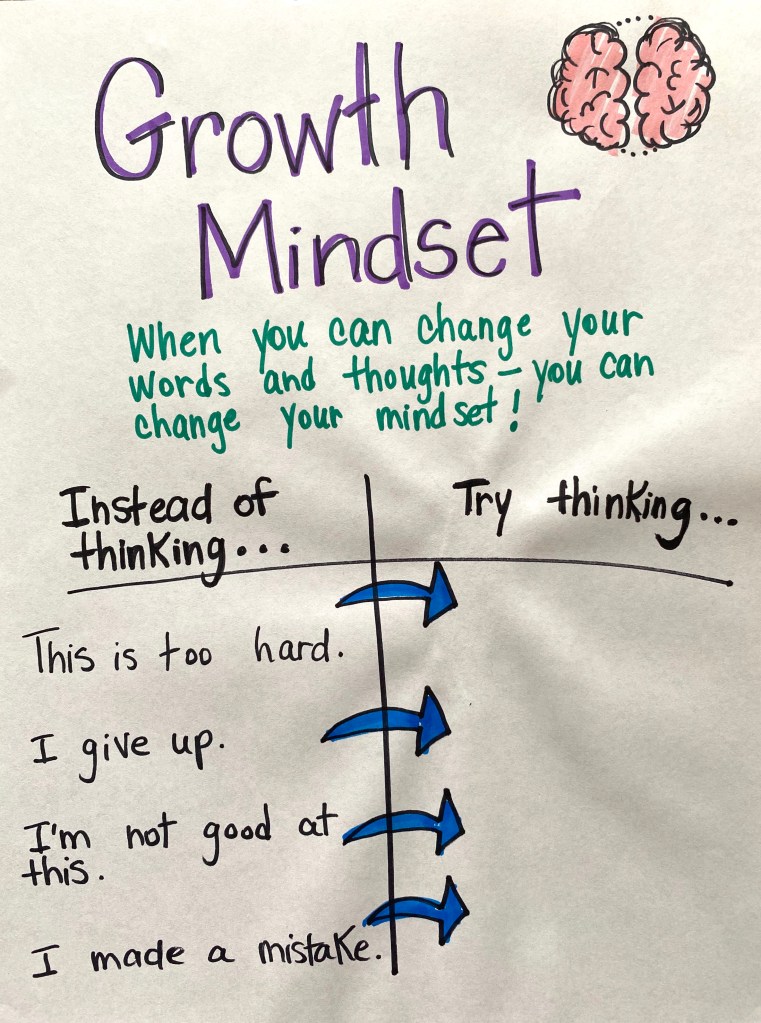 Growth
Mindset
When you can change your
words and thoughts – you can
change your mindset!
Instead of
thinking...
Try thinking...
This is too hard.
I give up.
I'm not good at
this.
I made a mistake.